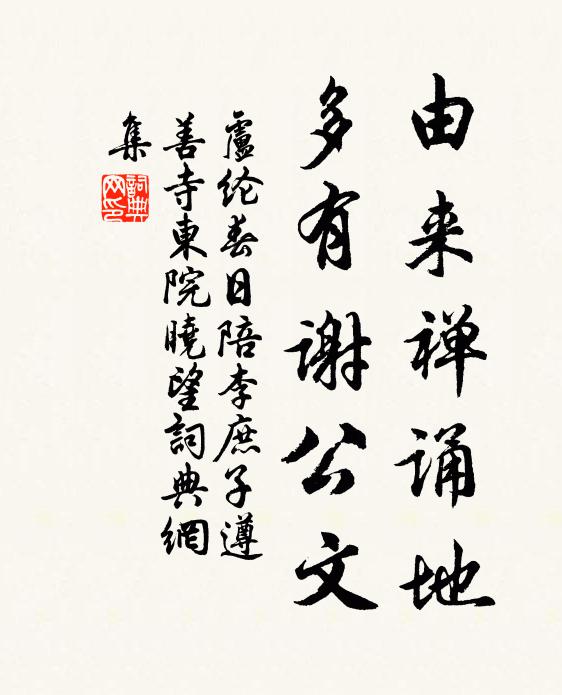 由来禅诵地
多有谢公文
盧纶春日陪李庶子遵
善寺東院曉望詞典網
集
詞典网印